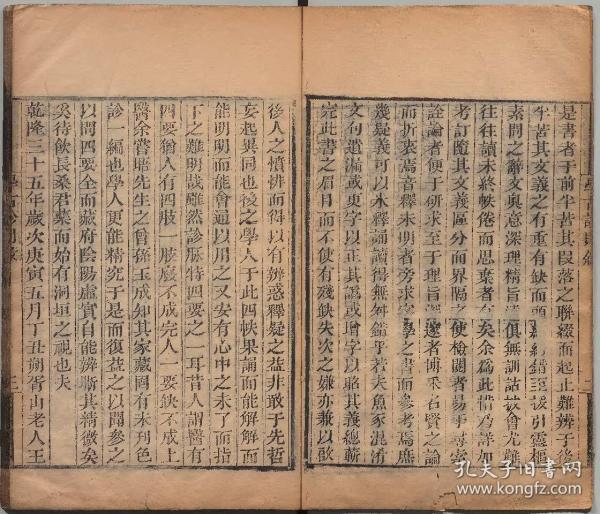 是書者于前半苦其段落之聯綴而起止難辨于後
半苦其文義之有重有缺而頭
素問之辭文奧意深理精旨
往往讀未終帙倦而思棄者
考訂隨其文義區分而界隔之使檢閱者易事尋索
詮論者便于研求至于理旨
而折衷焉音釋未明者旁求字學之書而參考焉庶
幾疑義可以永釋誦讀得無舛錯乎若夫魚豕混淆
文句遺漏或更字以正其譌或增字以略其義總竊
完此書之眉目而不使有殘缺失次之嫌亦兼以啟
後人之憤排而得有辨惑釋疑之益非敢于先哲
妄起異同也後之學人于此四帙果誦而能解解而
能明明而能會通以用之又安有心中之未了而指
下之難明哉雖然診脈特四要之一耳昔人謂醫有
四要猶人有四肢一肢廢不成完人一要缺不成上
醫余嘗培先生之曾孫玉成知其家藏尚有未刊色
診一編也學人更能精究于是而復益之以聞參之
以問四要全而藏府陰陽虛實自能辨晰其精微矣
奚待飲長桑君藥而始有洞垣之視也夫
乾隆三十五年歲次庚寅五月丁丑朔胥山老人王
三
孔夫子旧书网
www.kongfz.com